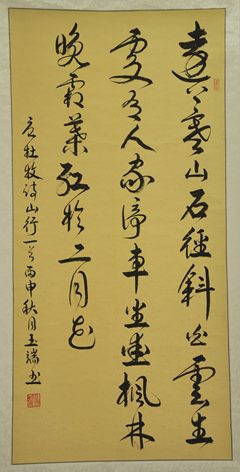 遠上寒山石徑斜白雲生
處有人家停車坐愛楓林
晚霜葉紅於二月花
杜牧詩山行一首丙申秋月玉瑞书